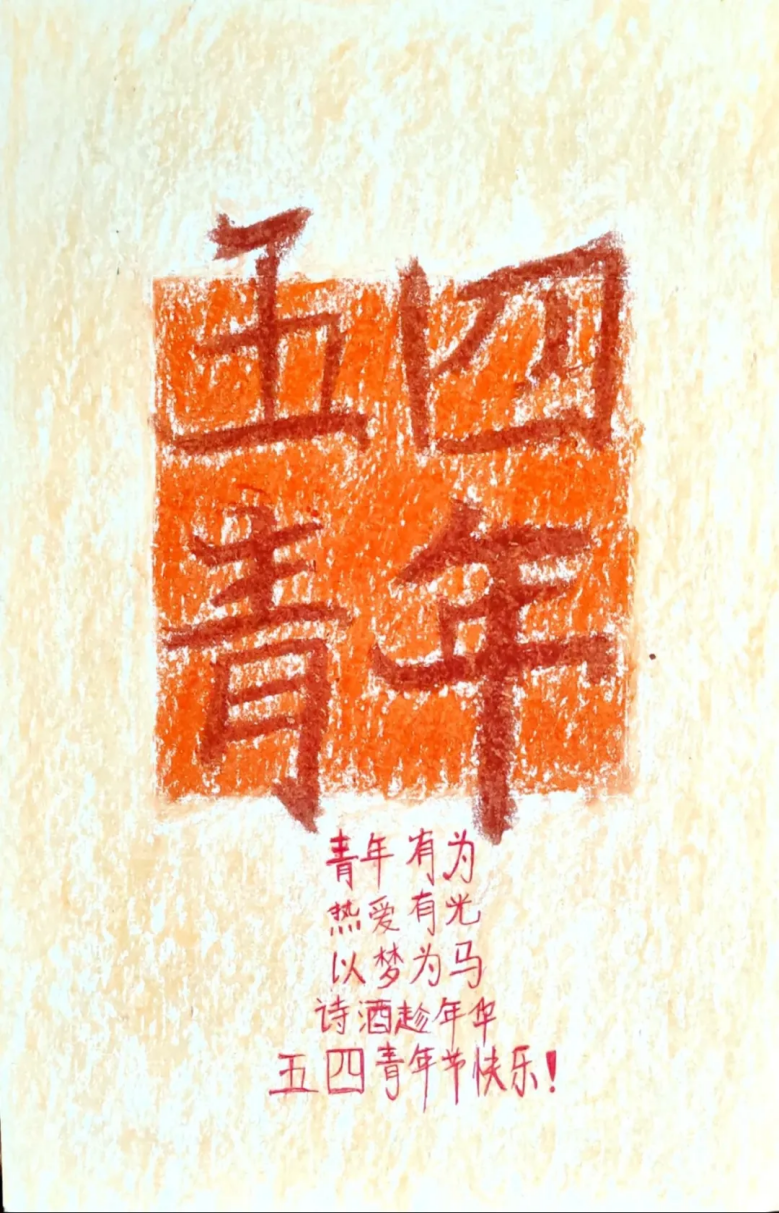 五四
青年
青年有为
热爱有光
以梦为马
诗酒趁年华
五四青年节快乐!